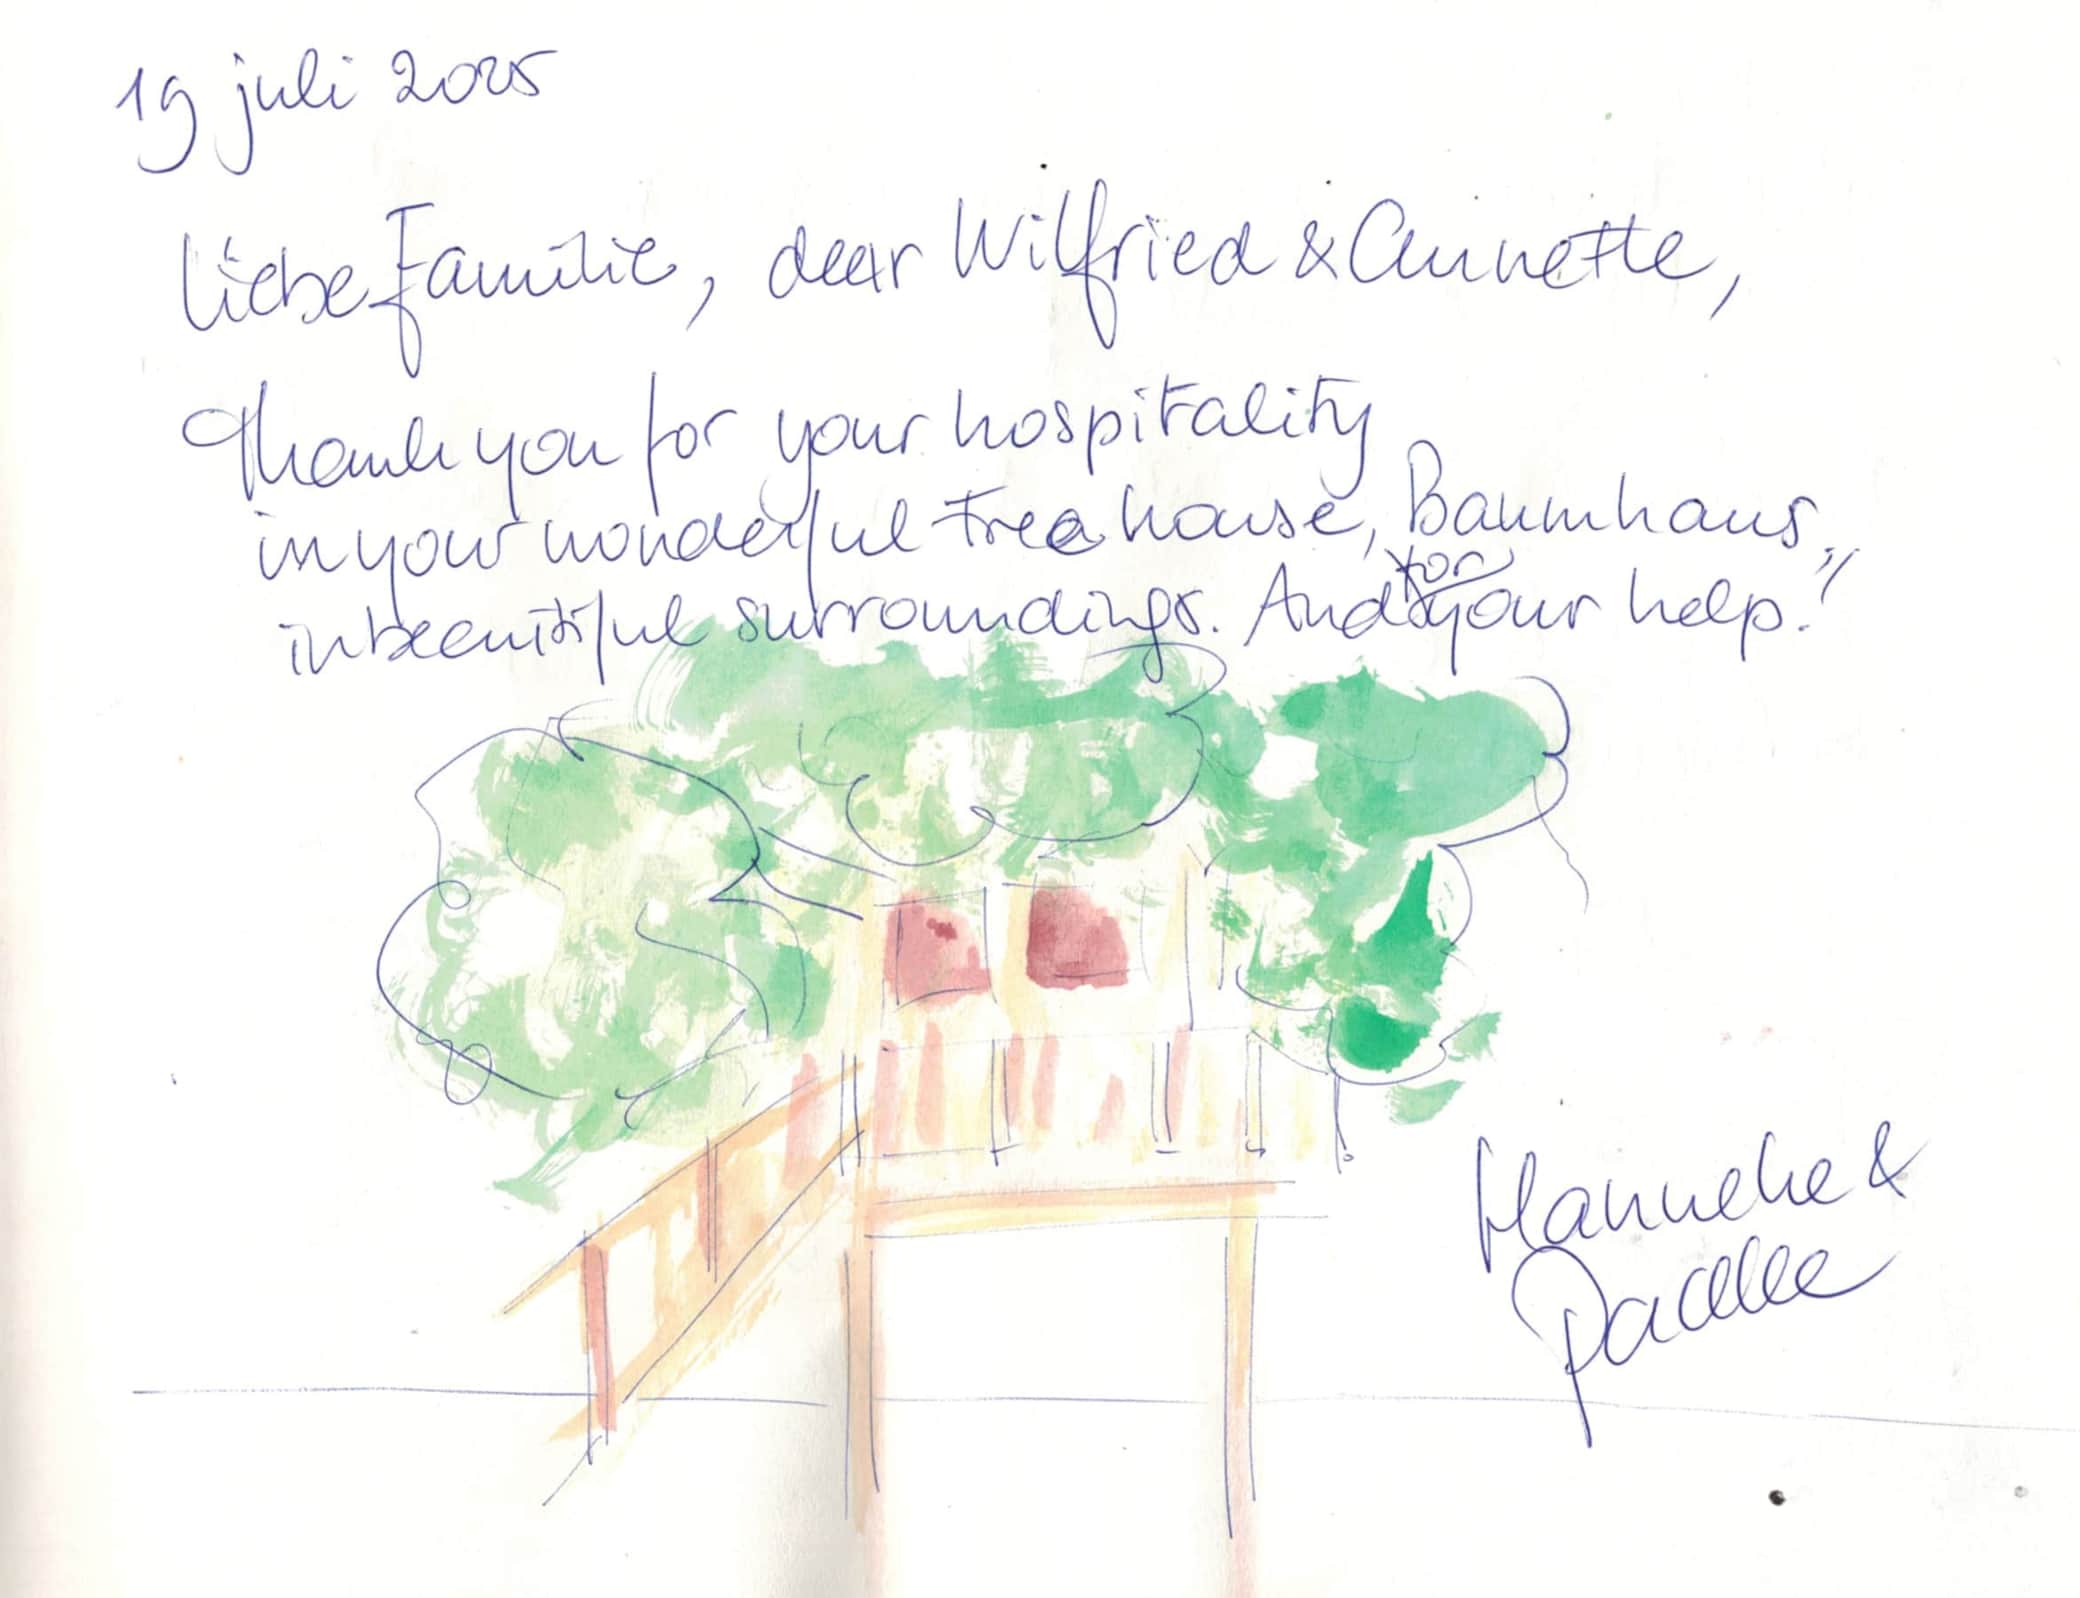 19 juli 2025
Liebe Familie, dear Wilfried & Annette,
Thank you for your hospitality
in your wonderful tree house, Baumhaus,
in beautiful surroundings. And for your help!
Hanneke &